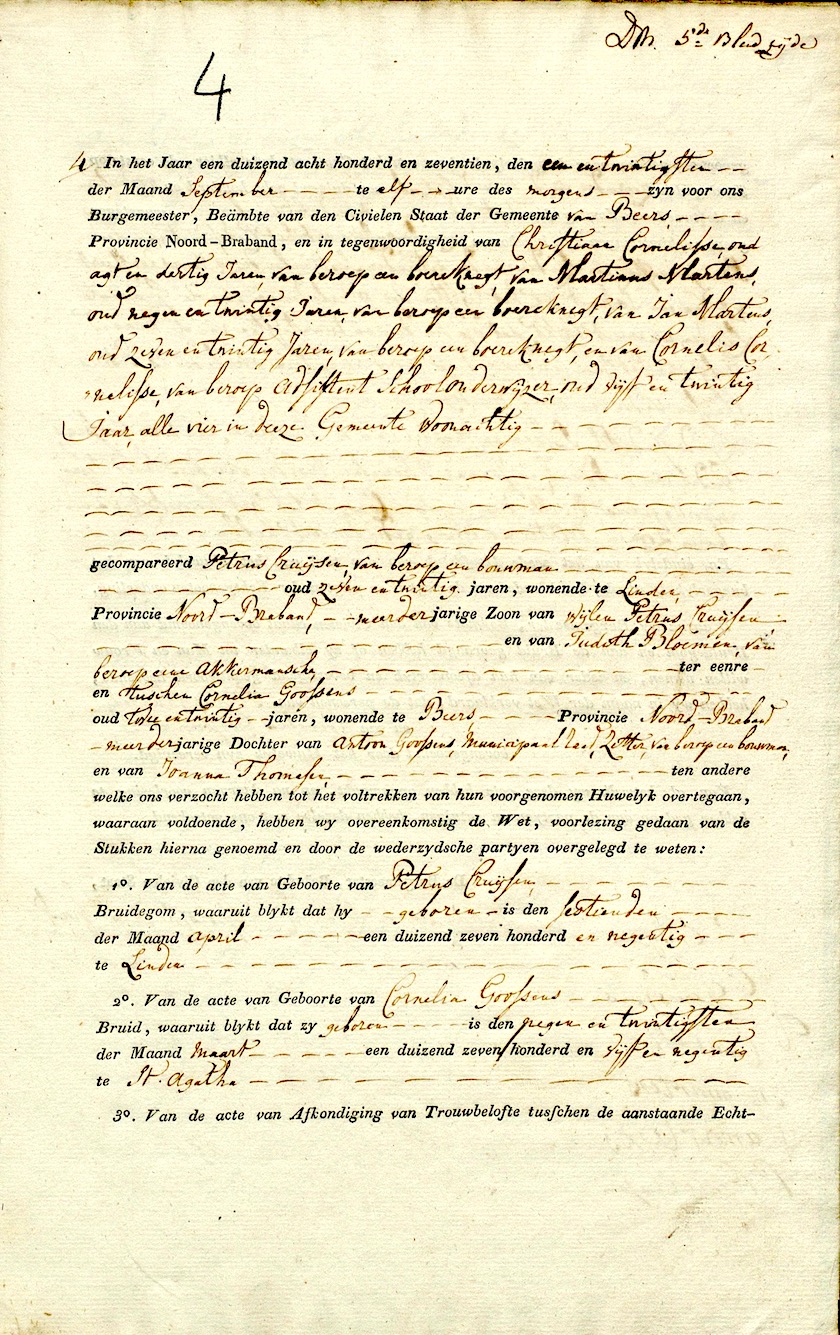 5de Bladzyde
4
4 In het Jaar een duizend acht honderd en zeventien, den een en twintigsten
der Maand September te elf ure des morgens zyn voor ons
Burgemeester, Beämbte van den Civielen Staat der Gemeente van Beers,
Provincie Noord-Braband, en in tegenwoordigheid van Christiaan Cornelisse, oud
agt en dertig Jaren, van beroep een boereknegt, van Martinus Martens,
oud negen en twintig Jaren, van beroep een boereknegt, van Jan Martens,
oud zeven en twintig Jaren, van beroep een boereknegt, en van Cornelis Cor,
nelisse, van beroep Adsistent Schoolonderwijzer, oud vijf en twintig
Jaar, alle vier in deeze Gemeente woonachtig
gecompareerd Petrus Cruijsen, van beroep een bouwman
oud zeven en twintig jaren, wonende te Linden,
Provincie Noord-Braband, meerderjarige Zoon van wijlen Petrus Cruijsen
en van Judith Bloemen, van
beroep eene Akkermansche, ter eenre
en tuschen Cornelia Goossens
oud twee en twintig jaren, wonende te Beers Provincie Noord-Braband
meerderjarige Dochter van Antoon Goossens, Municipaal Raad, Zetter, van beroep een bouwman,
en van Joanna Thomasse, ten andere
welke ons verzocht hebben tot het voltrekken van hun voorgenomen Huwelyk overtegaan,
waaraan voldoende, hebben wy overeenkomstig de Wet, voorlezing gedaan van de
Stukken hierna genoemd en door de wederzydsche partyen overgelegd te weten:
1o. Van de acte van Geboorte van Petrus Cruijsen,
Bruidegom, waaruit blykt dat hy geboren is den sestienden
der Maand april een duizend zeven honderd en negentig
te Linden
2o. Van de acte van Geboorte van Cornelia Goossens
Bruid, waaruit blykt dat zy geboren is den negen en twintigsten
der Maand Maart een duizend zeven honderd en vijf en negentig
te St. Agatha
3o. Van de acte van Afkondiging van Trouwbelofte tusſchen de aanstaande Echt-